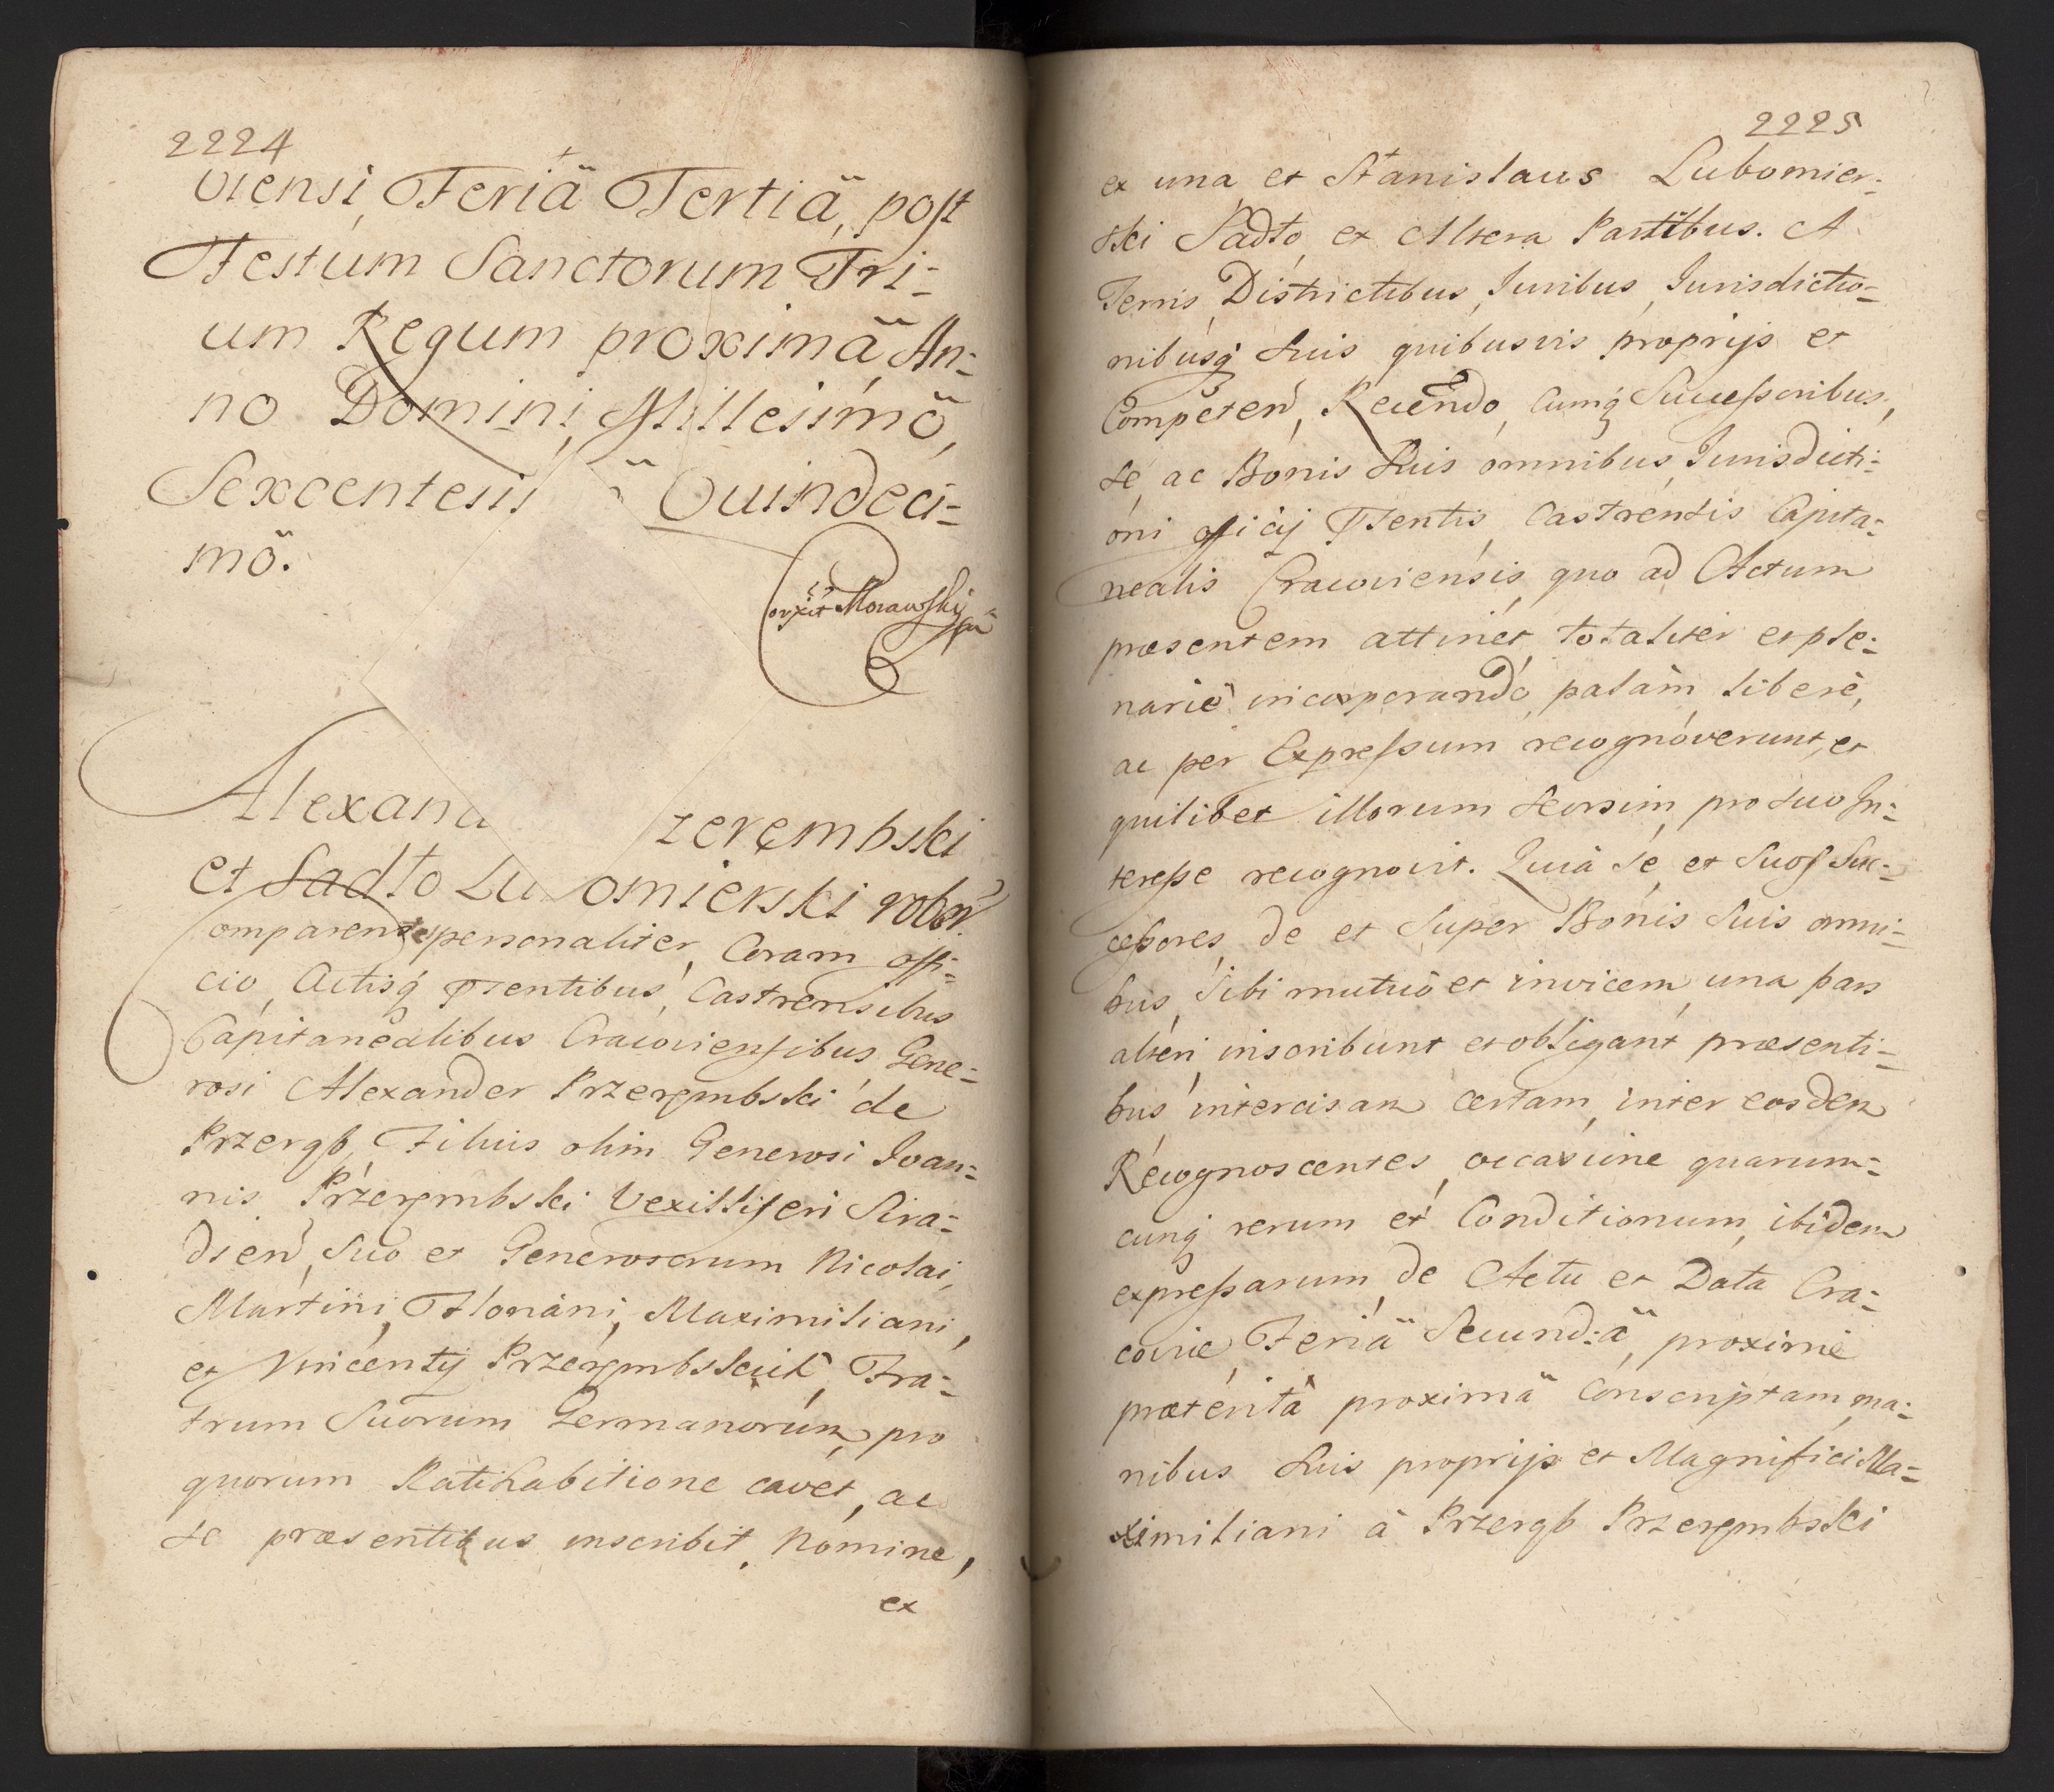 2224
viensi, Feriâ Tertiâ, post
Festum Sanctorum Tri=
um Regum proximâ, An=
no Domini, Millesimô,
Sexcentesi Quindeci=
mô.
Morawski
Alexand zerembski
et Sadło Lu omierski robor.
Comparentes personaliter, Coram offi=
cio, Actisq; Pńsentibus, Castrensibus
Capitanealibus Cracoviensibus, Gene=
rosi Alexander Przerembski de
Przeręb, Filius olim Generosi Joan=
nis Przerembski Vexilliferi Sira=
dień, Suo et Generosorum Nicolai,
Martini, Floriani, Maximiliani,
et Vincentij Przerembskich, Fra=
trum Suorum Germanorum, pro
quorum Ratihabitione cavet, ac
se præsentibus inscribit, Nomine,
ex
2225
ex una et Stanislaus Lubomier=
ski Sadło, ex Altera Partibus. A
Terris, Districtibus, Juribus, Jurisdictio=
nibusq; Suis quibusvis proprijs et
Competeń, Recendo, Cumq; Successoribus,
se, ac Bonis Suis omnibus, Jurisdicti=
oni officij Pńsentis, Castrensis Capita=
nealis Cracoviensis, quo ad Actum
præsentem attinet, totaliter et ple=
narie incorporando, palam, libere,
ac per Expressum recognoverunt, et
quilibet illorum seorsim, pro suo In=
teresse recognovit. Quia Se, et Suos Suc=
cessores, de et Super Bonis Suis omni=
bus, Sibi mutuo et invicem, una pars
alteri, inscribunt et obligant præsenti=
bus, intercisam certam, inter eosdem
Recognoscentes, occasione quarum=
cunq; rerum et Conditionum, ibidem
expressarum, de Actu et Data Cra=
coviæ, Feriâ Secundâ, proxime
præteritâ proximâ Conscriptam, ma=
nibus Suis proprijs et Magnifici Ma=
ximiliani à Przeręb Przerembski